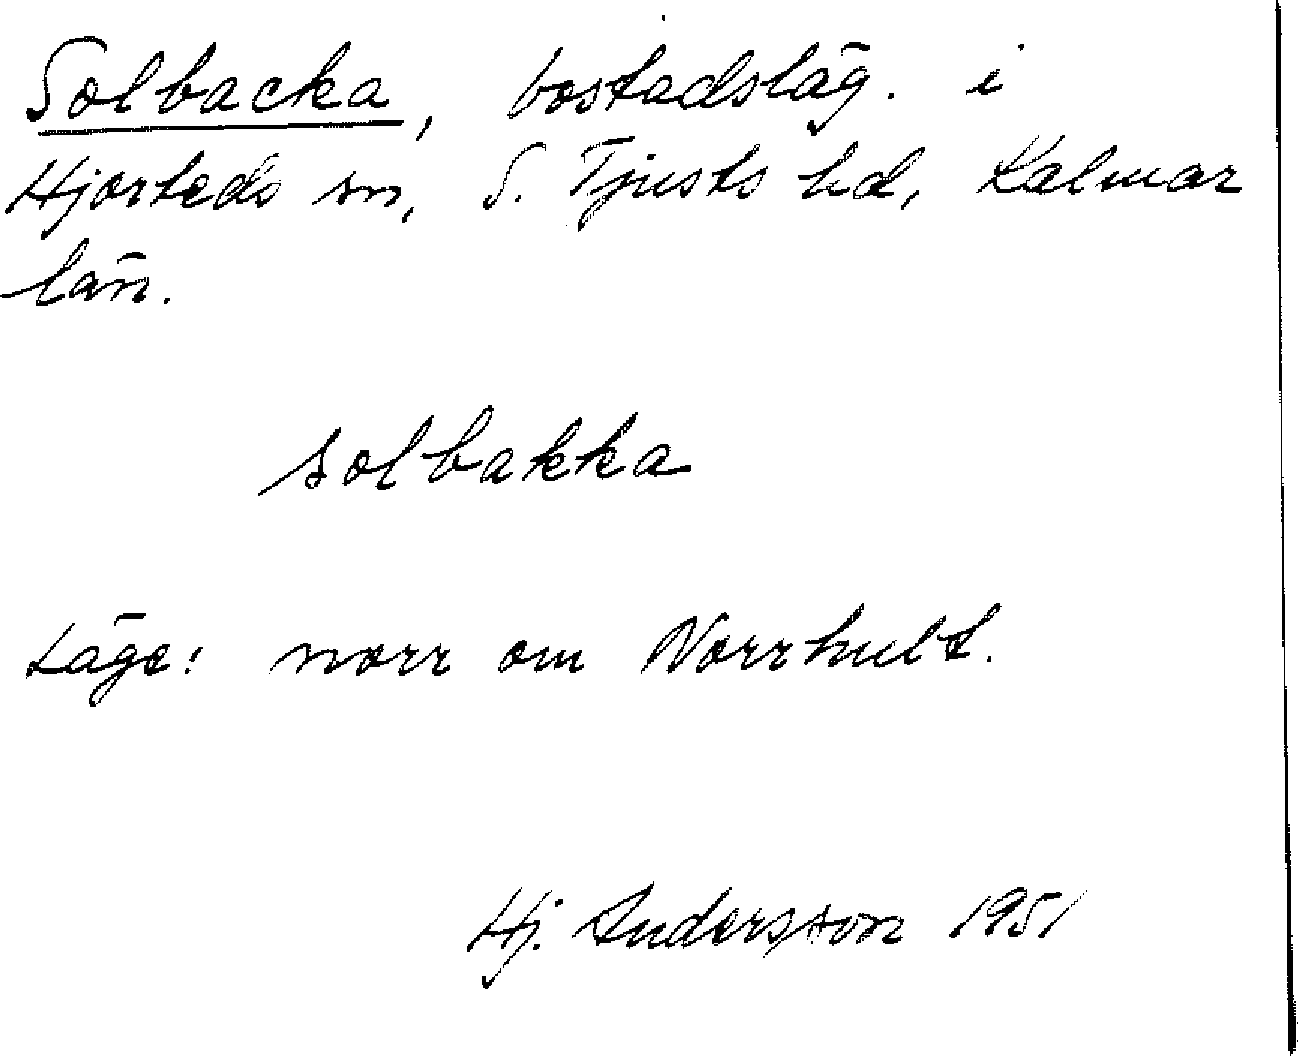 Solbacka, bostadsläg. i
Hjorteds sn, S. Tjusts hd, Kalmar
län.
solbakka
Läge: norr om Norrhult.
Hj. Andersson 1951